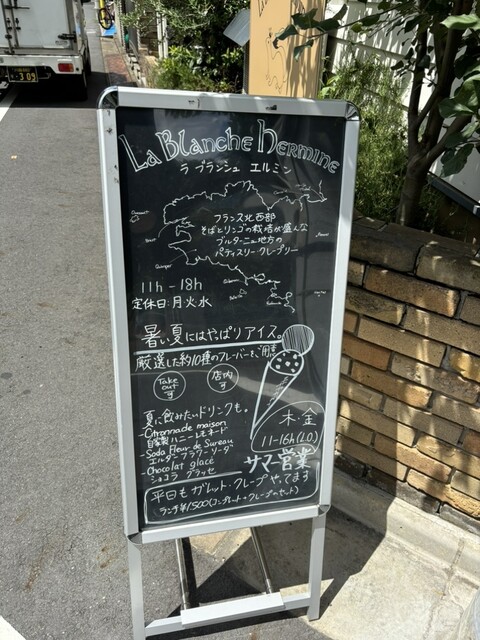 La Blanche Hermine
ラ ブランシュ エルミン
フランス北西部
そばとリンゴの栽培が盛んな
ブルターニュ地方の
パティスリー・クレープリー
Brest
Quimper
11h - 18h
定休日:月・火・水
暑い夏にはやっぱりアイス。
厳選した約10種のフレーバーをご用意
Take out 可
店内 可
夏に飲みたいドリンクも。
- Citronnade maison
自家製ハニーレモネード
- Soda Fleur de Sureau
エルダーフラワーソーダ
- Chocolat glacé
ショコラ グラッセ
木・金
11-16h(LO)
サマー営業
平日もガレット・クレープやってます
ランチ¥1,500(コンプレット+クレープのセット)
・309